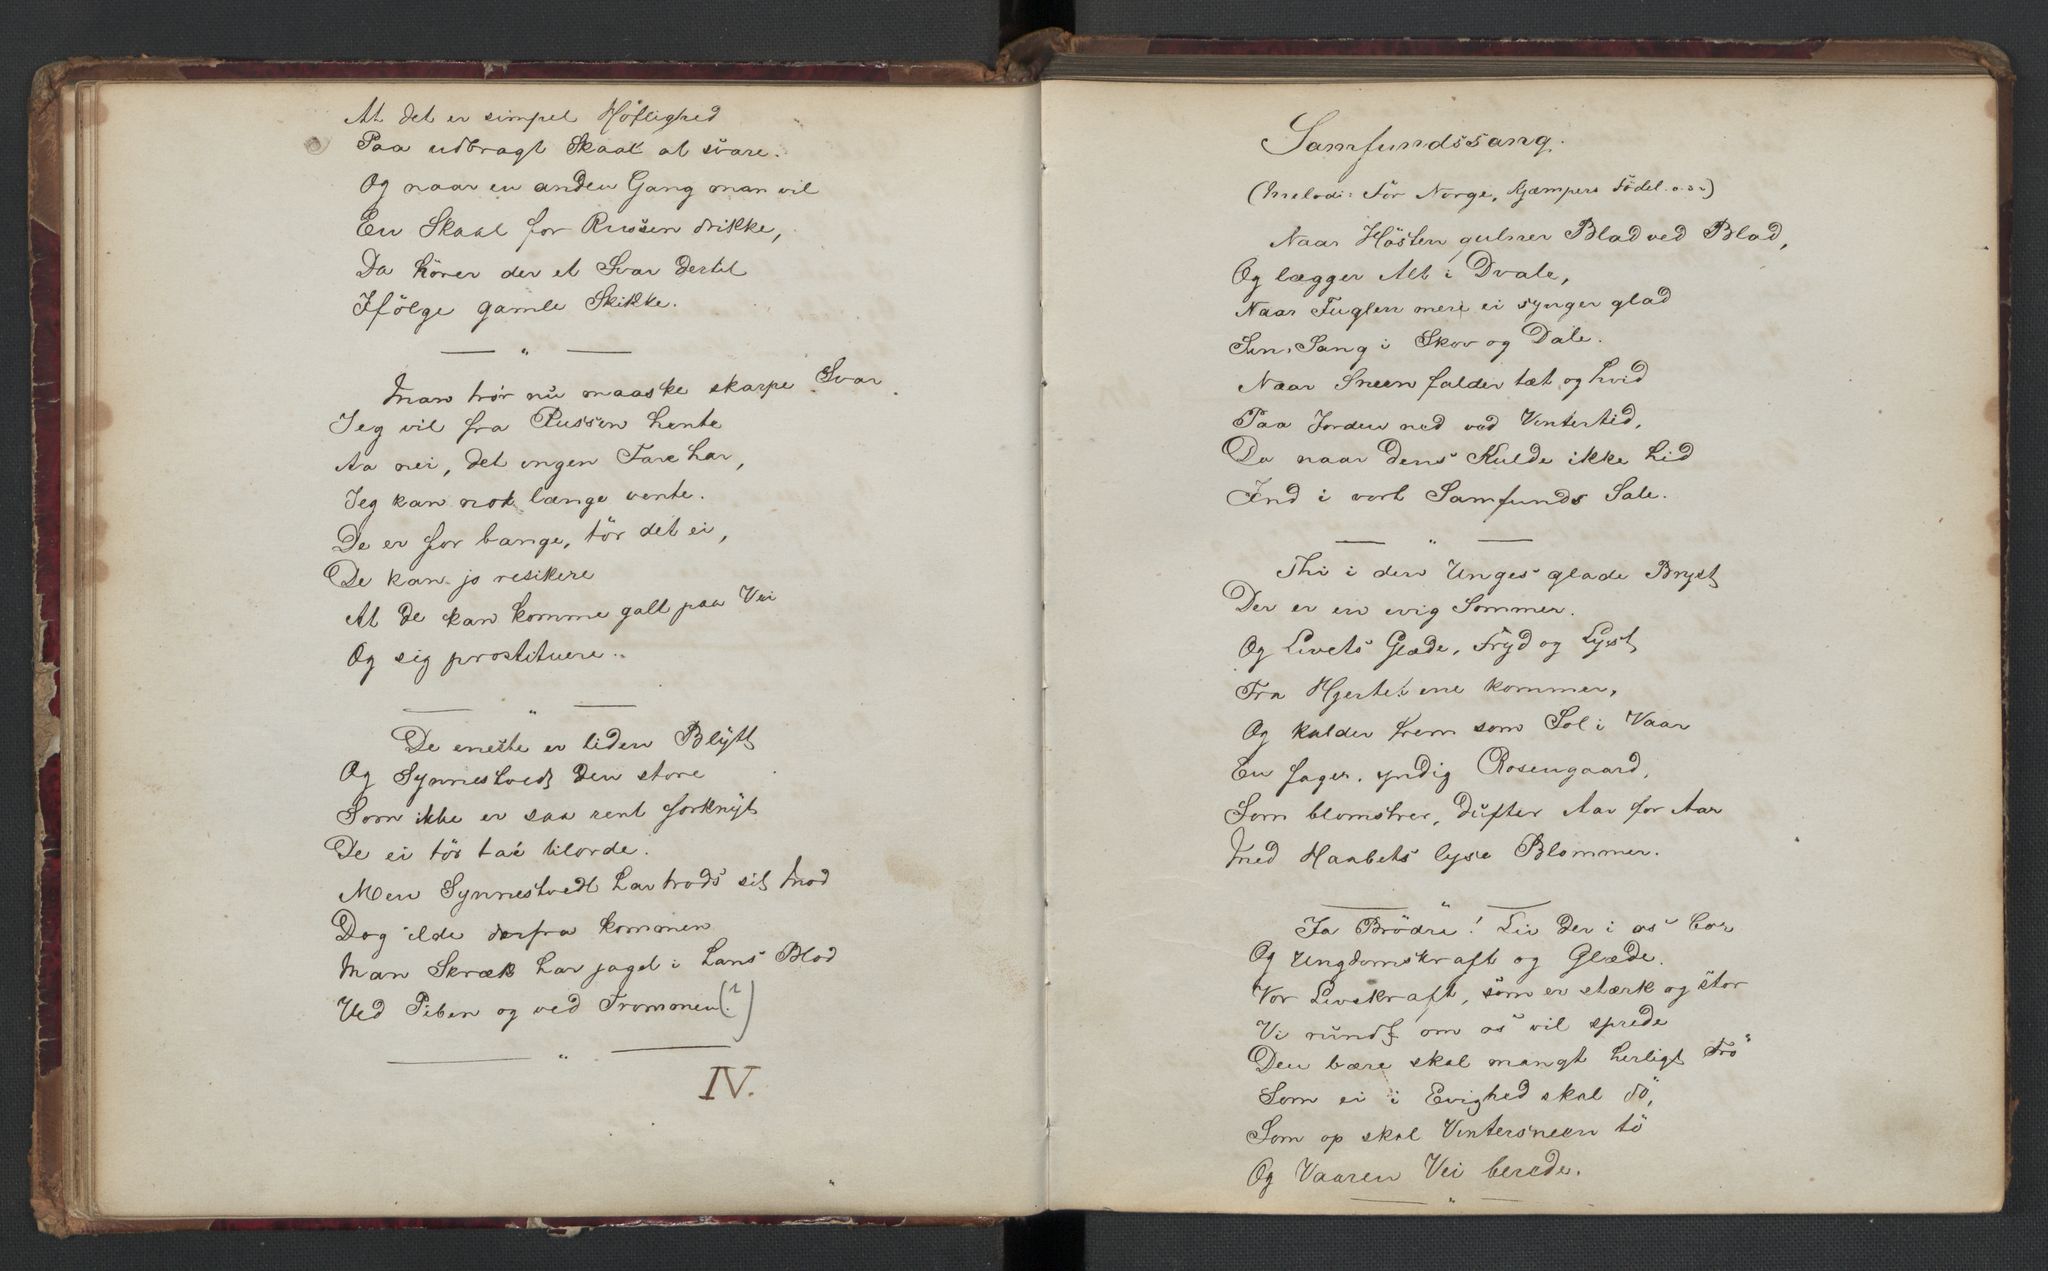 At det er simpel Höflighed
Paa udbragt Skaal at svare.
Og naar en anden Gang man vil
En Skaal for Russen drikke,
Da hörer der et Svar dertil
Ifölge gamle Skikke.
— " —
Man tror nu maaske skarpe Svar
Jeg vil fra Russen hente
Aa nei, det ingen Fare har,
Jeg kan nok længe vente.
De er for bange, tör det ei,
De kan jo resikere
At de kan komme galt paa Vei
Og sig prostituere.
— " —
De eneste er liden Blÿtt
Og Synnestvedt den store
Som ikke er saa rent forknÿt
De ei tör ta'e tilorde.
Men Synnestvedt har trods sit Mod
Dog ilde derfra kommen
Man Skræk har jaget i hans Blod
Ved Piben og ved Trommen(?)
— " —
IV.
Samfundssang.
(Melodi: For Norge, Kjæmpers Födel. o.s.v)
Naar Hösten gulner Blad ved Blad,
Og lægger Alt i Dvale,
Naar Fuglen mere ei synger glad
Sin Sang i Skov og Dale.
Naar Sneen falder tæt og hvid
Paa Jorden ned ved Vintertid,
Da naar dens Kulde ikke hid
Ind i vort Samfunds Sale.
— " —
Thi i den Unges glade Bryst
Der er en evig Sommer.
Og Livets Glæde, Fryd og Lyst
Fra Hjerterne kommer,
Og kalder frem som Sol i Vaar
En fager, yndig Rosengaard,
Som blomstrer, dufter Aar for Aar
Med Haabets lyse Blommer.
— " —
Ja Brödre! Liv der i os bor
Og Ungdomskraft og Glæde.
Vor Livskraft, som er stærk og stor
Vi rundt om os vil sprede
Den bære skal mangt herligt Frö
Som ei i Evighed skal dö,
Som op skal Vintersneen tö
Og Vaaren Vei berede.
— " —